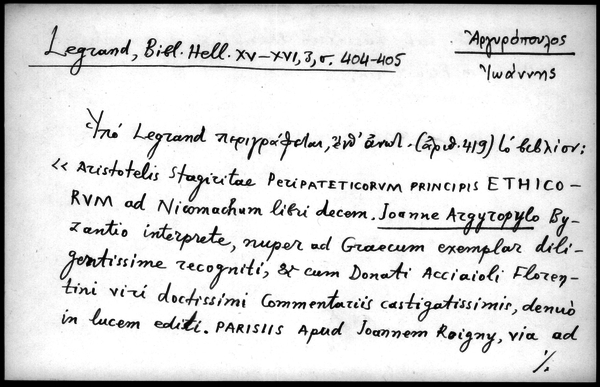 Legrand, Bibl. Hell. XV–XVI, 3, σ. 404-405
Ἀργυρόπουλος
Ἰωάννης
Ὑπό Legrand περιγράφεται, ἐνθ' ἀνωτ. (ἀριθ. 419) τό βιβλίον:
«Aristotelis Stagiritae PERIPATETICORVM PRINCIPIS ETHICO-
RVM ad Nicomachum libri decem. Joanne Argyropylo By-
zantio interprete, nuper ad Graecum exemplar dili-
gentissime recogniti, & cum Donati Acciaioli Floren-
tini viri doctissimi Commentariis castigatissimis, denuò
in lucem editi. PARISIIS Apud Joannem Roigny, via ad
./.